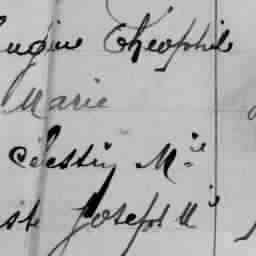 Eugène Théophile
Marie
Célestin M.ie
Joseph M.ie